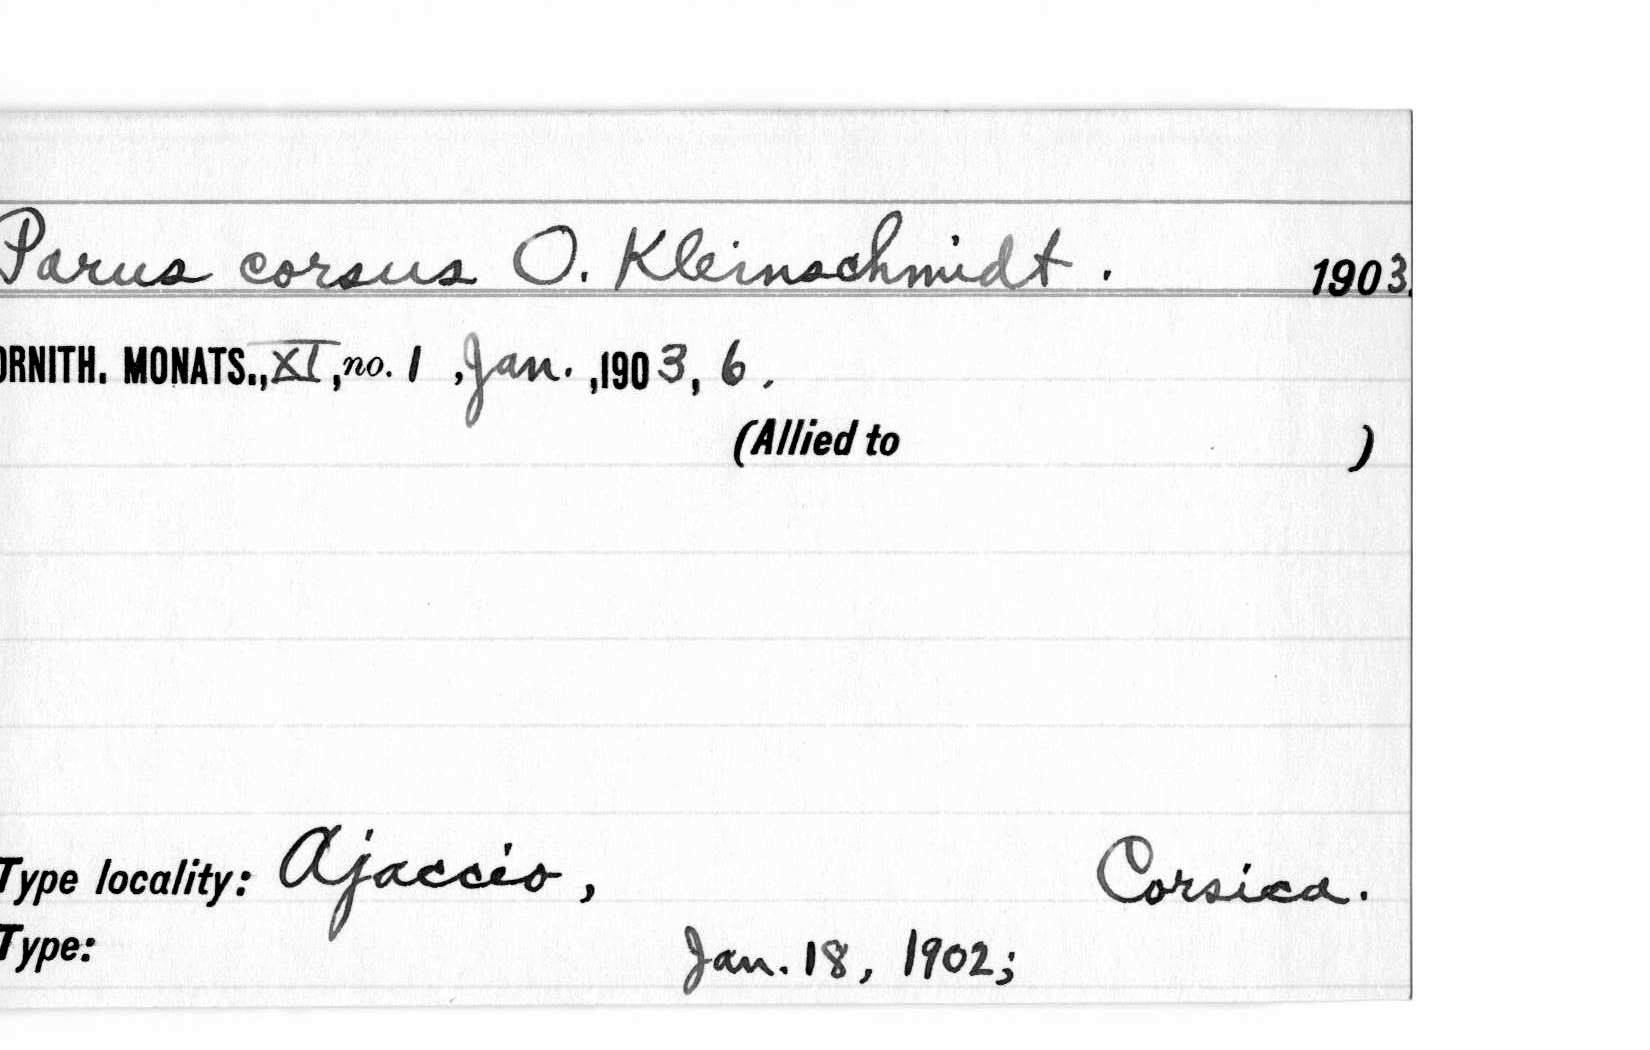 Parus corsus O. Kleinschmidt. 1903.
ORNITH. MONATS., XI, no. 1, Jan., 1903, 6.
(Allied to )
Type locality: Ajaccio, Corsica.
Type: Jan. 18, 1902;